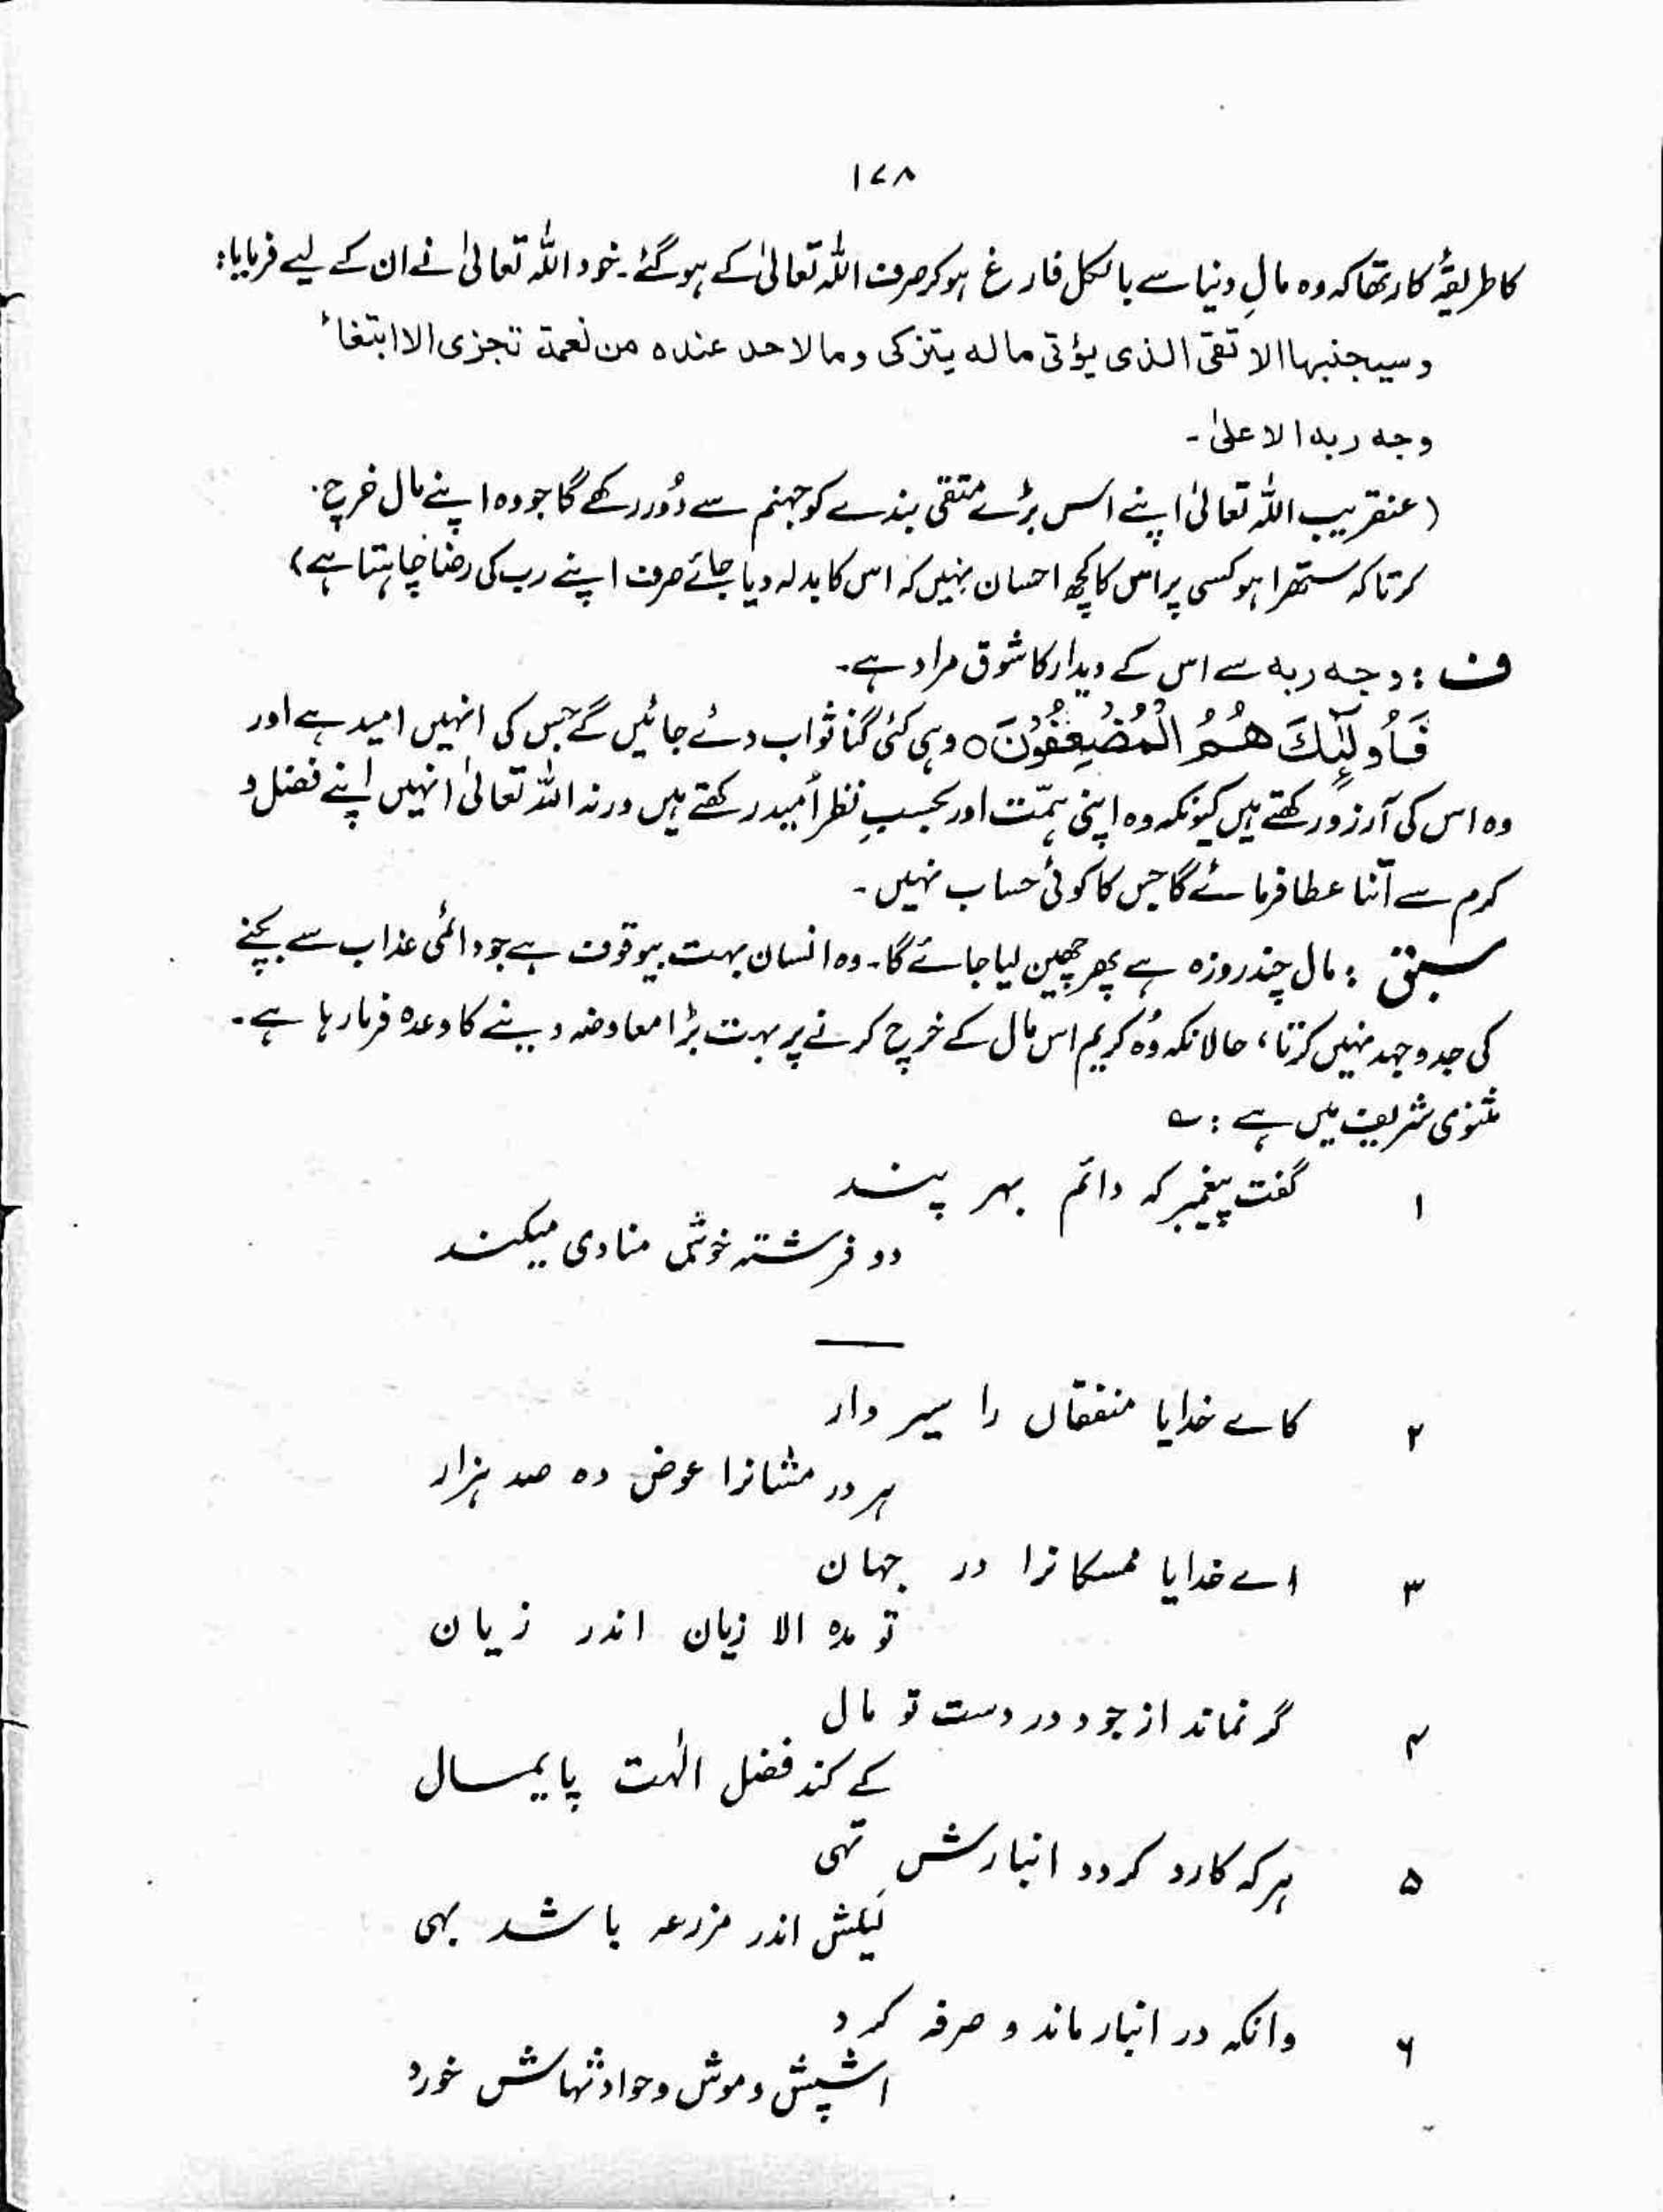 ۱۷۸
کا طریقۂ کار تھا کہ وہ مالِ دنیا سے بالکل فارغ ہو کر صرف اللہ تعالیٰ کے ہو گئے۔ خود اللہ تعالیٰ نے ان کے لیے فرمایا:
وسیجنبہا الاتقی الذی یؤتی مالہ یتزکی ومالاحد عندہ من نعمۃ تجزی الا ابتغاء
وجہ ربہ الاعلیٰ۔
(عنقریب اللہ تعالیٰ اپنے اس بڑے متقی بندے کو جہنم سے دُور رکھے گا جو وہ اپنے مال خرچ
کرتا کہ ستھرا ہو کسی پر اس کا کچھ احسان نہیں کہ اس کا بدلہ دیا جائے صرف اپنے رب کی رضا چاہتا ہے)
ف : وجہ ربہ سے اس کے دیدار کا شوق مراد ہے۔
فَاُولٰٓئِكَ هُمُ الْمُضْعِفُوْنَ○ وہی کئی گنا ثواب دئے جائیں گے جس کی انہیں امید ہے اور
وہ اس کی آرزو رکھتے ہیں کیونکہ وہ اپنی ہمّت اور بحسبِ نظر اُمید رکھتے ہیں ورنہ اللہ تعالیٰ انہیں اپنے فضل و
کرم سے اتنا عطا فرمائے گا جس کا کوئی حساب نہیں۔
سبق : مال چند روزہ ہے پھر چھین لیا جائے گا۔ وہ انسان بہت بیوقوف ہے جو دائمی عذاب سے بچنے
کی جدوجہد نہیں کرتا، حالانکہ وُہ کریم اس مال کے خرچ کرنے پر بہت بڑا معاوضہ دینے کا وعدہ فرما رہا ہے۔
مثنوی شریف میں ہے : ؎
۱ گفت پیغمبر کہ دائم بہر پند
دو فرشتہ خوش منادی میکند
۲ کاے خدایا منفقاں را سیر دار
ہر در مشانرا عوض دہ صد ہزار
۳ اے خدایا ممسکانرا در جہان
تو مدہ الا زیان اندر زیان
۴ گر نماند از جود در دست تو مال
کے کند فضل الٰہت پایمال
۵ ہر کہ کارد گردد انبارش تہی
لیکش اندر مزرعہ باشد بہی
۶ وانکہ در انبار ماند و صرفہ کرد
اشپش و موش و حوادثہاش خورد